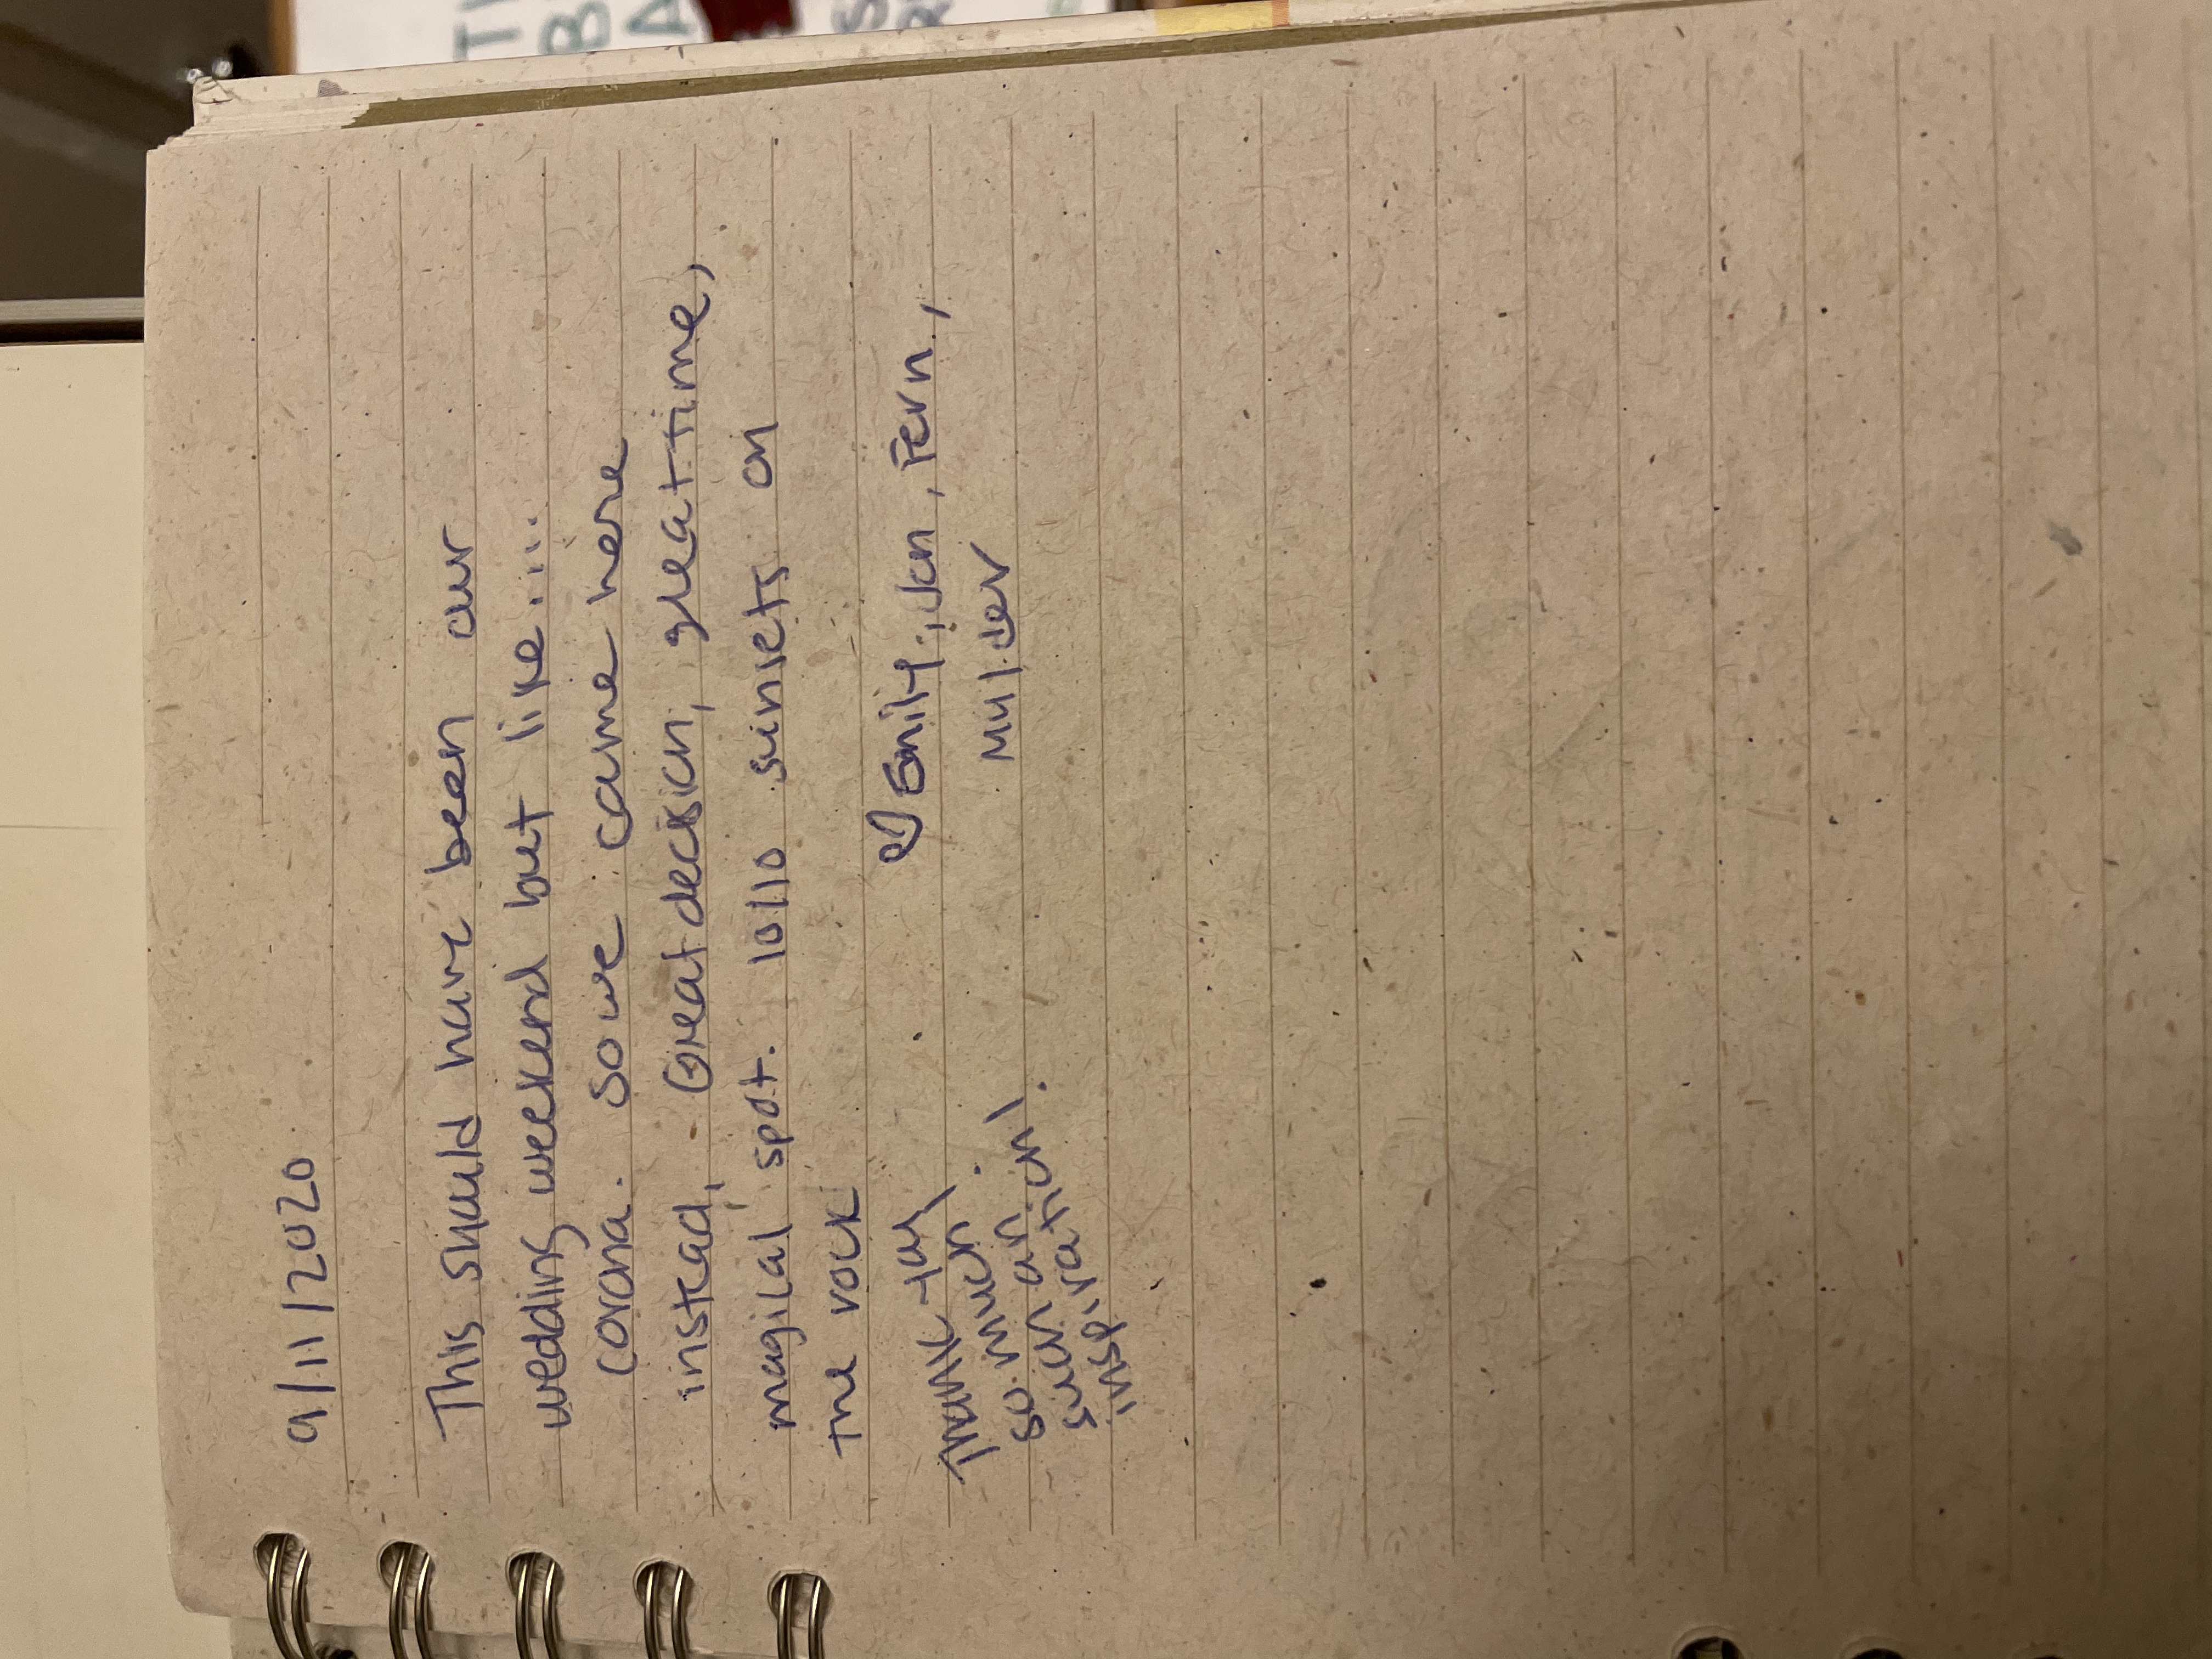 9/11/2020
This should have been our
wedding weekend but like....
corona. So we came here
instead, Great decision, great time,
magical spot. 10/10 sunsets on
the rock
♡ Emily, Jon, Fern,
Mulder
Thank you
so much.
such an
inspiration!